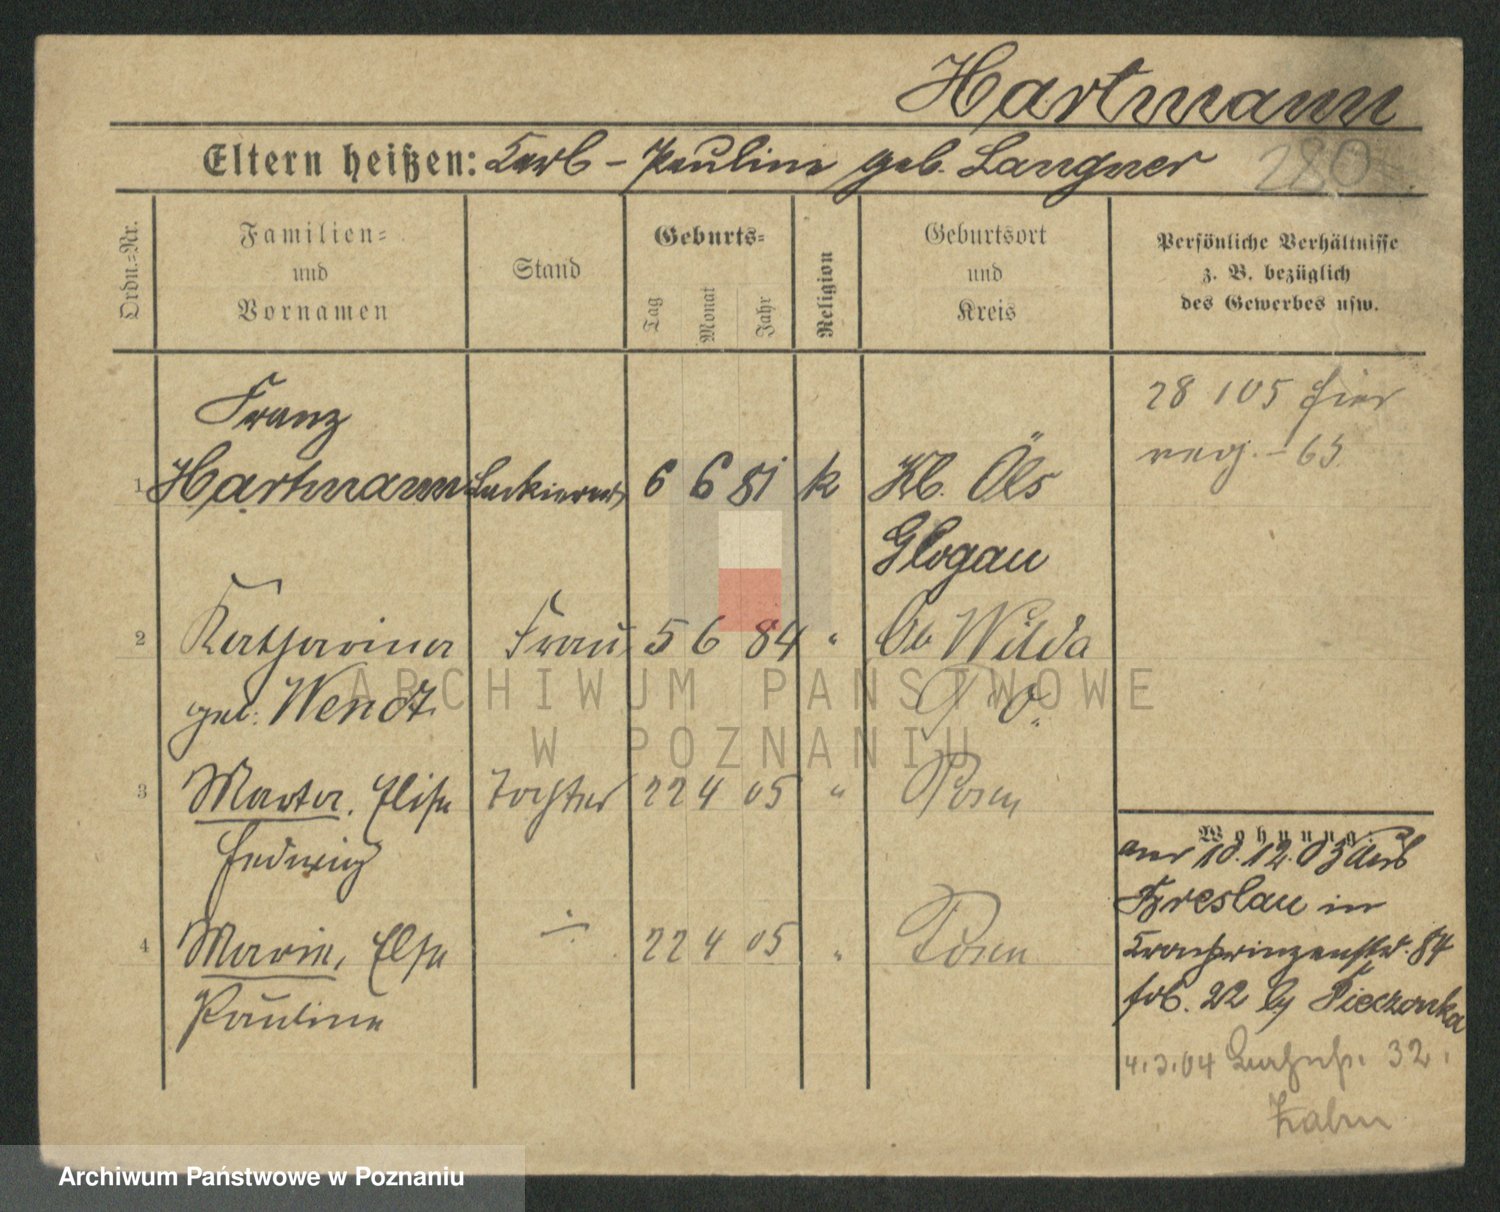 Hartmann
Eltern heißen: Karl - Pauline geb. Langner
280
Ordn.-Nr.
Familien-
und
Vornamen
Stand
Geburts-
Tag
Monat
Jahr
Religion
Geburtsort
und
Kreis
Persönliche Verhältnisse
z. B. bezüglich
des Gewerbes usw.
Franz
1 Hartmann 6 6 81 k Kl. Öls
Glogau
28 105 hier
2 Katharina Frau 5 6 84 " Ob Wilda
geb. Wendt P. O.
3 Marta, Elise Tochter 22 4 05 " Posen
Hedwig
4 Marie, Else 22 4 05 " Posen
Pauline
Wohnung.
am 10. 12. 03 aus
Breslau in
Kronprinzenstr. 84
fol. 22 by Pieczonka
4.3.04 32.
ARCHIWUM PAŃSTWOWE
W POZNANIU
Archiwum Państwowe w Poznaniu